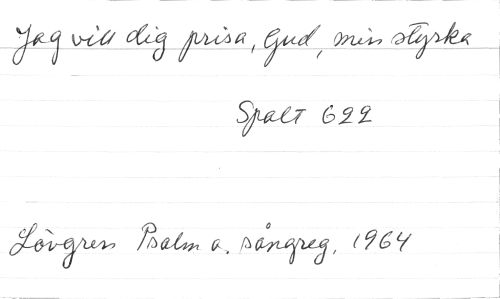 Jag vill dig prisa, Gud, min styrka
Spalt 622
Lövgren Psalm o. sångreg. 1964